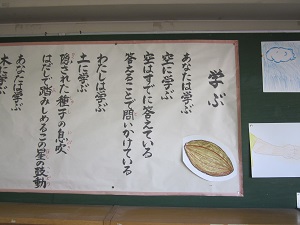 学ぶ
あなたは学ぶ
空に学ぶ
空はすでに答えている
答えることで問いかけている
わたしは学ぶ
土に学ぶ
隠された種子の息吹
はだしで踏みしめるこの星の鼓動
あなたは学ぶ
木に学ぶ